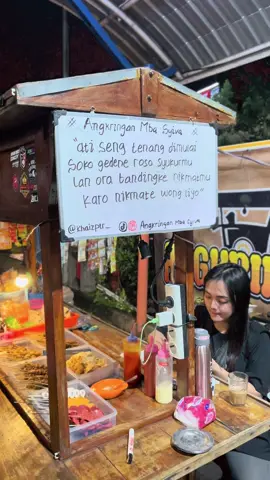 # Angkringan Mba Syiwa #
"ati seng tenang dimulai
Soko gedene roso syukurmu
Lan ora bandingke nikmatmu
Karo nikmate wong liyo"
@khaizpur_ Angkringan Mba Syiwa
GURIH